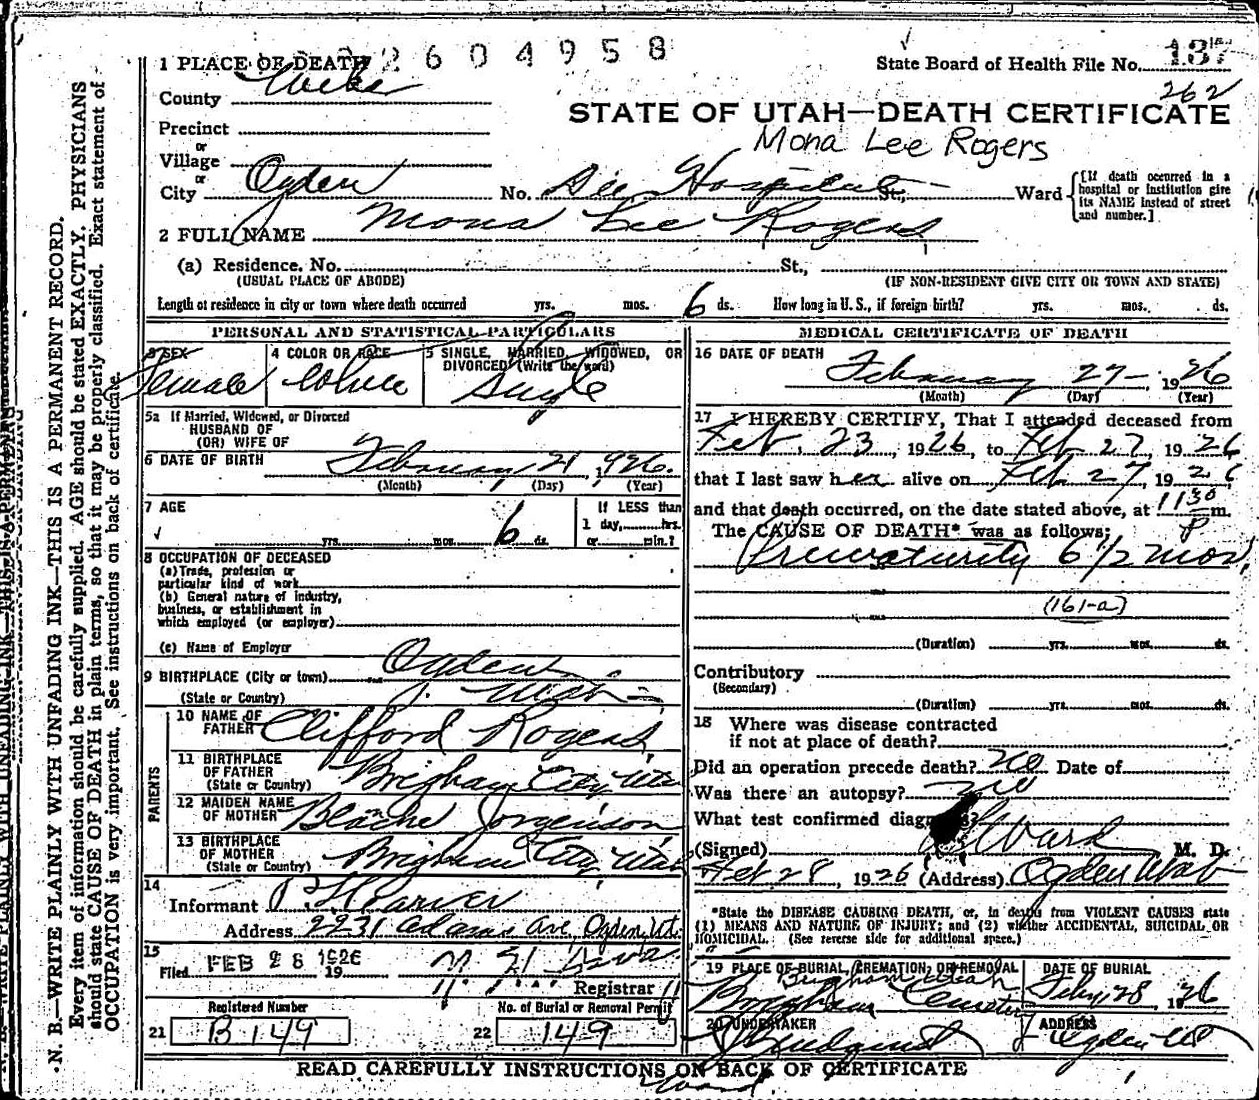 2604958
1 PLACE OF DEATH
State Board of Health File No. 137
262
County Weber
STATE OF UTAH—DEATH CERTIFICATE
Precinct
Mona Lee Rogers
or
Village
or
City Ogden No. Dee Hospital St., Ward [If death occurred in a hospital or institution give its NAME instead of street and number.]
2 FULL NAME Mona Lee Rogers
(a) Residence. No. St.,
(USUAL PLACE OF ABODE) (IF NON-RESIDENT GIVE CITY OR TOWN AND STATE)
Length of residence in city or town where death occurred yrs. mos. 6 ds. How long in U. S., if foreign birth? yrs. mos. ds.
PERSONAL AND STATISTICAL PARTICULARS
3 SEX 4 COLOR OR RACE 5 SINGLE, MARRIED, WIDOWED, OR
DIVORCED (Write the word)
Female White Single
5a If Married, Widowed, or Divorced
HUSBAND OF
(OR) WIFE OF
6 DATE OF BIRTH February 21 1926.
(Month) (Day) (Year)
7 AGE If LESS than
1 day, hrs.
yrs. mos. 6 ds. or min.?
8 OCCUPATION OF DECEASED
(a) Trade, profession or
particular kind of work
(b) General nature of industry,
business, or establishment in
which employed (or employer)
(c) Name of Employer
9 BIRTHPLACE (City or town) Ogden
(State or Country) Utah
PARENTS
10 NAME OF
FATHER Clifford Rogers
11 BIRTHPLACE
OF FATHER
(State or Country) Brigham City, Utah
12 MAIDEN NAME
OF MOTHER Blanche Jorgenson
13 BIRTHPLACE
OF MOTHER
(State or Country) Brigham City, Utah
14
Informant
Address 2231 Adams Ave, Ogden, Ut.
15
Filed FEB 28 1926 19
Registrar
Registered Number No. of Burial or Removal Permit
21 B149 22 149
MEDICAL CERTIFICATE OF DEATH
16 DATE OF DEATH
February 27 1926
(Month) (Day) (Year)
17 I HEREBY CERTIFY, That I attended deceased from
Feb. 23, 1926, to Feb 27, 1926
that I last saw her alive on Feb 27, 1926
and that death occurred, on the date stated above, at 1130 P m.
The CAUSE OF DEATH* was as follows:
Prematurity 6 1/2 mos.
(161-a)
(Duration) yrs. mos. ds.
Contributory
(Secondary)
(Duration) yrs. mos. ds.
18 Where was disease contracted
if not at place of death?
Did an operation precede death? no Date of
Was there an autopsy? no
What test confirmed diagnosis?
(Signed) Ward M. D.
Feb 28, 1926 (Address) Ogden Utah
*State the DISEASE CAUSING DEATH, or, in deaths from VIOLENT CAUSES state
(1) MEANS AND NATURE OF INJURY; and (2) whether ACCIDENTAL, SUICIDAL OR
HOMICIDAL. (See reverse side for additional space.)
19 PLACE OF BURIAL, CREMATION, OR REMOVAL DATE OF BURIAL
Brigham Utah
Brigham Cemetery Feby 28, 1926
20 UNDERTAKER ADDRESS
Lindquist Ogden Ut
READ CAREFULLY INSTRUCTIONS ON BACK OF CERTIFICATE
Ward
N. B.—WRITE PLAINLY WITH UNFADING INK—THIS IS A PERMANENT RECORD.
Every item of information should be carefully supplied. AGE should be stated EXACTLY. PHYSICIANS
should state CAUSE OF DEATH in plain terms, so that it may be properly classified. Exact statement of
OCCUPATION is very important. See instructions on back of certificate.